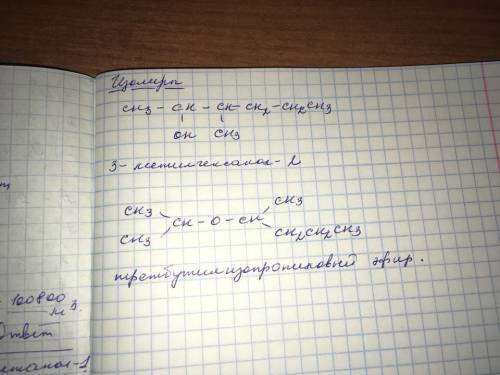 Изомеры
CH3 - CH - CH - CH2 - CH2CH3
OH CH3
3-метилгексанол-2
CH3 CH3
CH - O - CH
CH3 CH2CH2CH3
третбутилизопропиловый эфир.
100800
м3.
Ответ